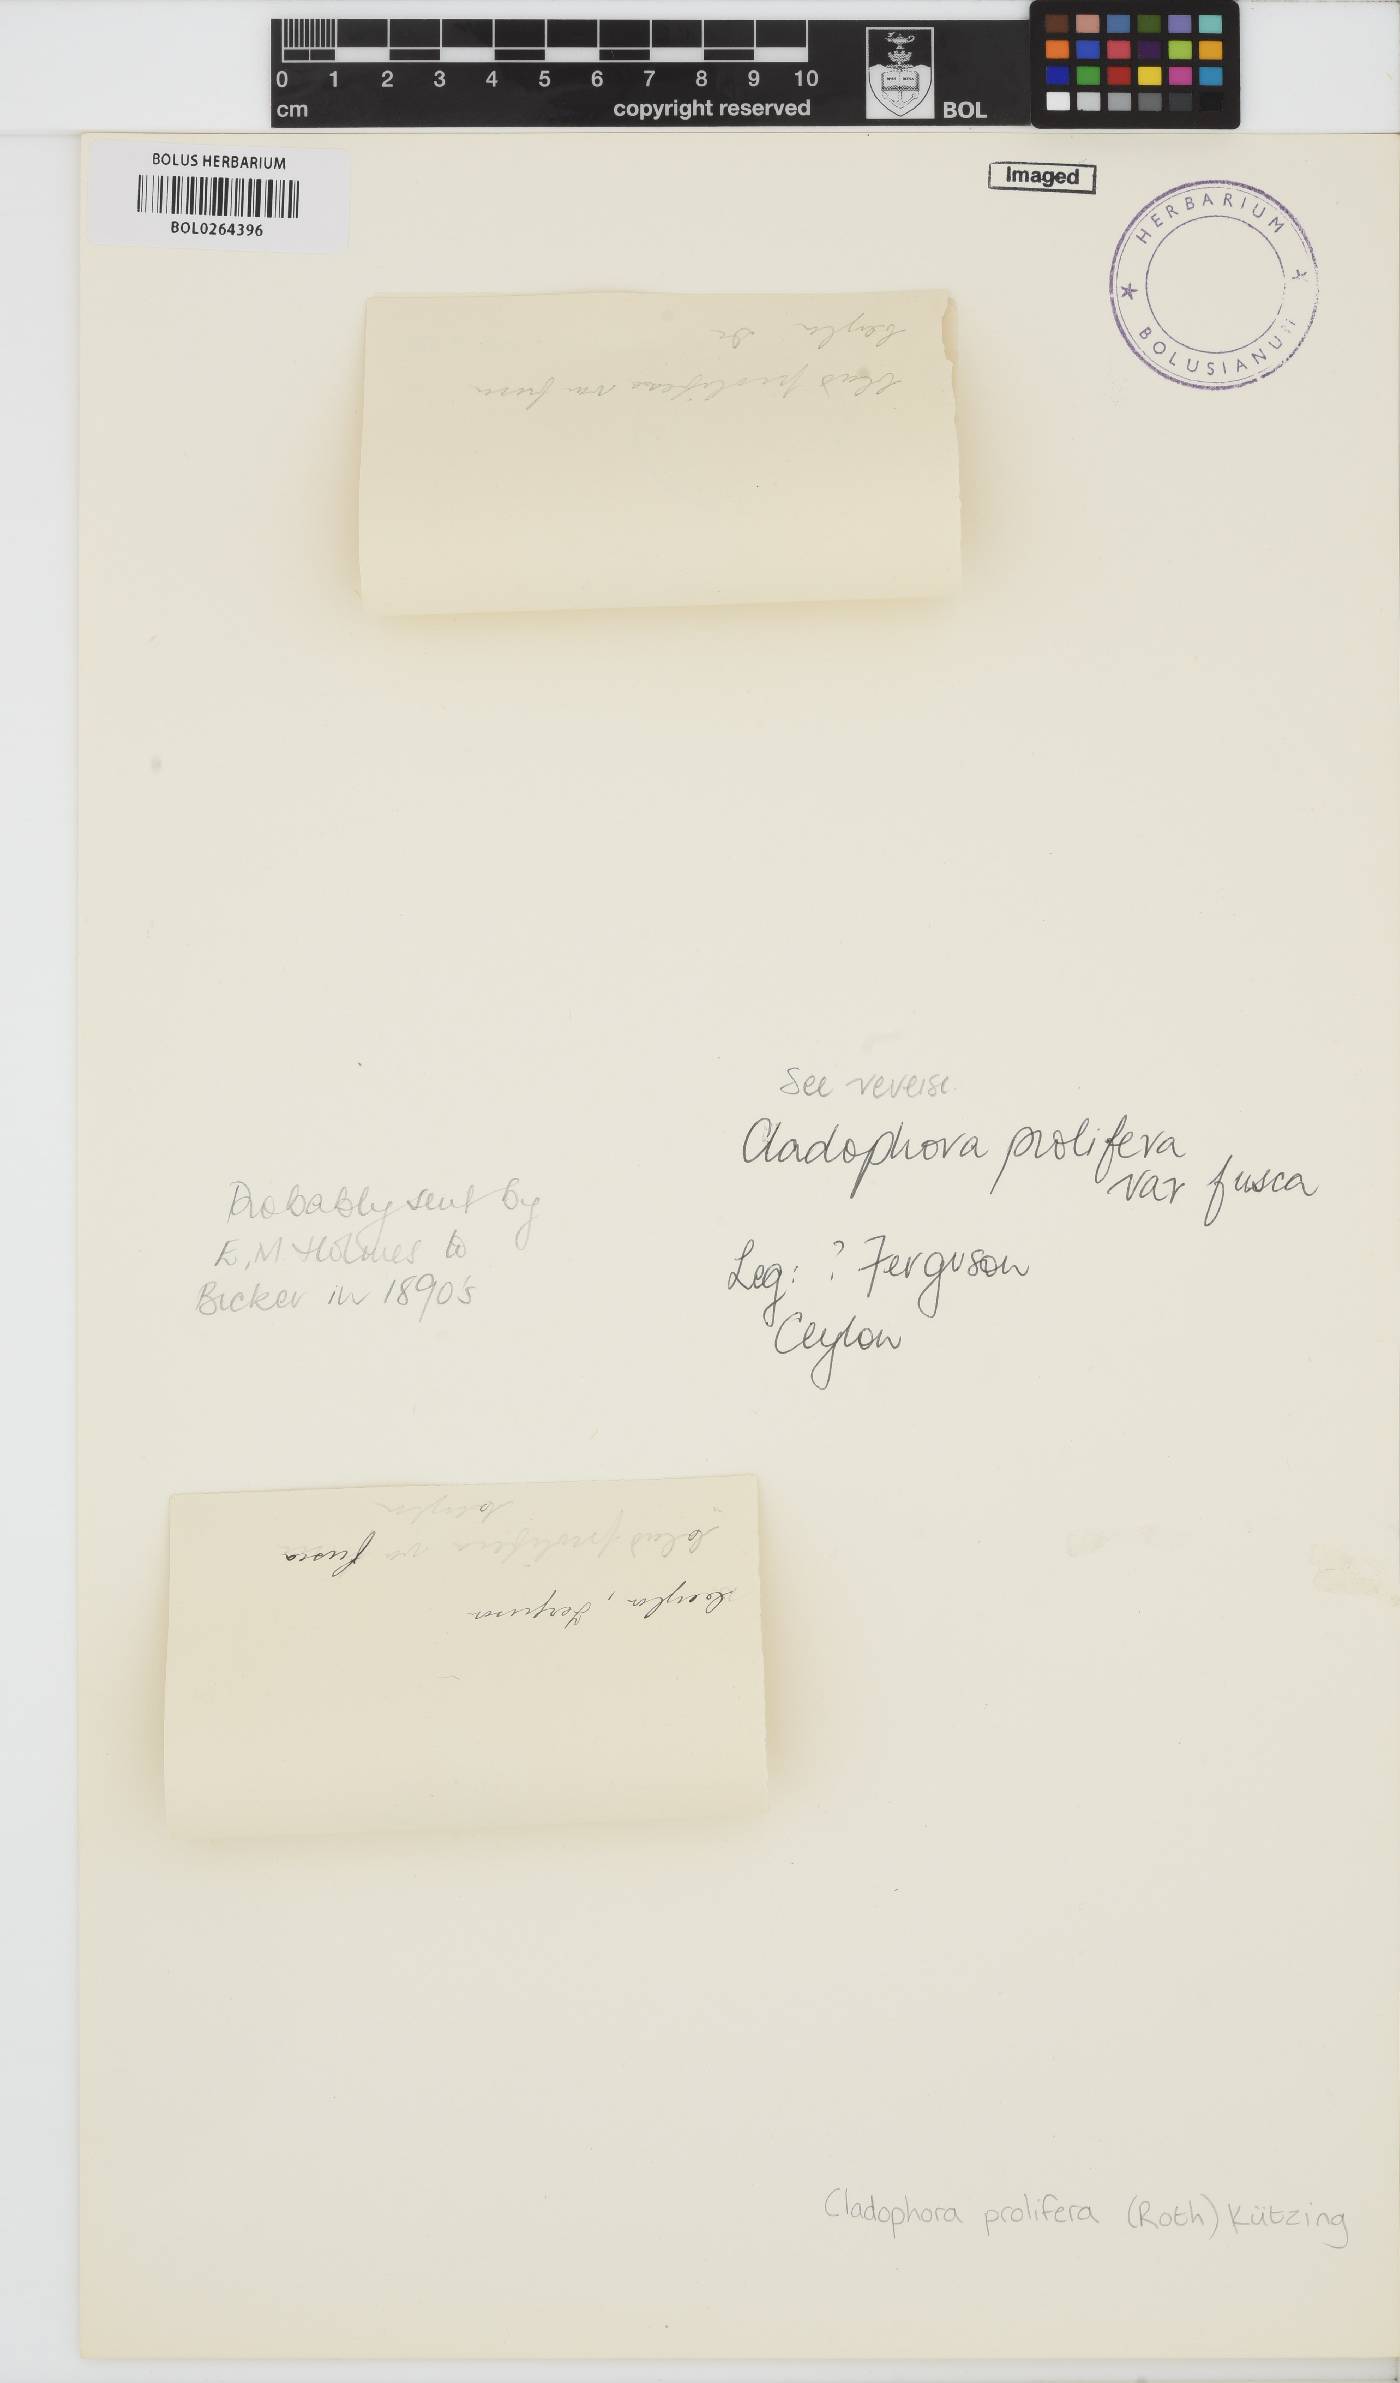 0 1 2 3 4 5 6 7 8 9 10
cm
copyright reserved
BOL
BOLUS HERBARIUM
BOL0264396
Imaged
HERBARIUM
BOLUSIANUM
Ceylon
Clad prolifera var fusca
See reverse.
Cladophora prolifera
var fusca
Probably sent by
E.M Holmes to
Becker in 1890's
Leg: ? Ferguson
Ceylon
Ceylon
Clad prolifera var fusca
Ceylon, Ferguson
Cladophora prolifera (Roth) Kützing